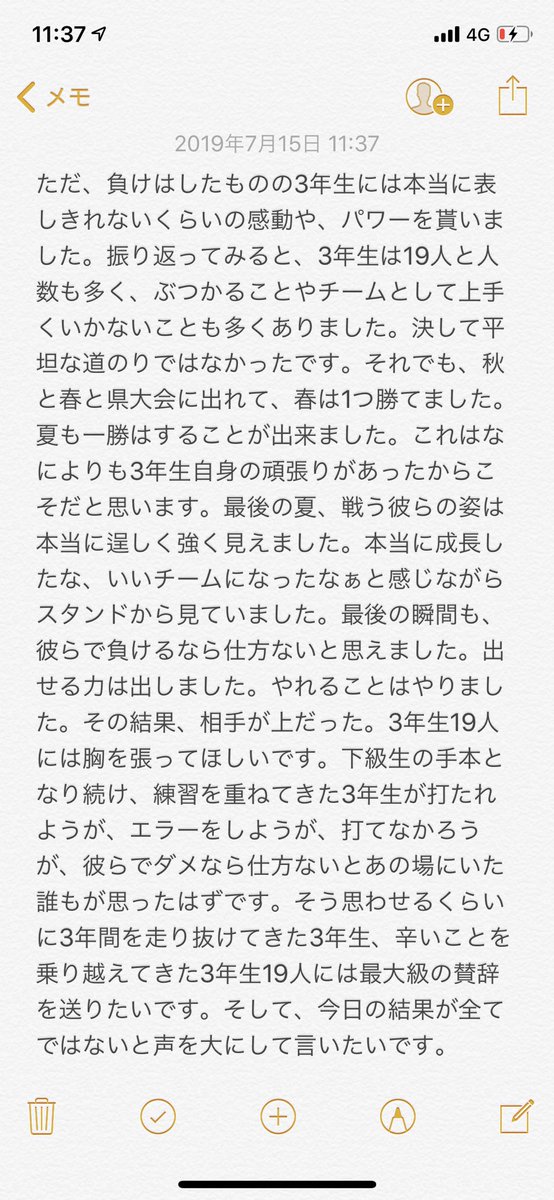 11:37
4G
メモ
2019年7月15日 11:37
ただ、負けはしたものの3年生には本当に表
しきれないくらいの感動や、パワーを貰いま
した。振り返ってみると、3年生は19人と人
数も多く、ぶつかることやチームとして上手
くいかないことも多くありました。決して平
坦な道のりではなかったです。それでも、秋
と春と県大会に出れて、春は1つ勝てました。
夏も一勝はすることが出来ました。これはな
によりも3年生自身の頑張りがあったからこ
そだと思います。最後の夏、戦う彼らの姿は
本当に逞しく強く見えました。本当に成長し
たな、いいチームになったなぁと感じながら
スタンドから見ていました。最後の瞬間も、
彼らで負けるなら仕方ないと思えました。出
せる力は出しました。やれることはやりまし
た。その結果、相手が上だった。3年生19人
には胸を張ってほしいです。下級生の手本と
なり続け、練習を重ねてきた3年生が打たれ
ようが、エラーをしようが、打てなかろう
が、彼らでダメなら仕方ないとあの場にいた
誰もが思ったはずです。そう思わせるくらい
に3年間を走り抜けてきた3年生、辛いことを
乗り越えてきた3年生19人には最大級の賛辞
を送りたいです。そして、今日の結果が全て
ではないと声を大にして言いたいです。